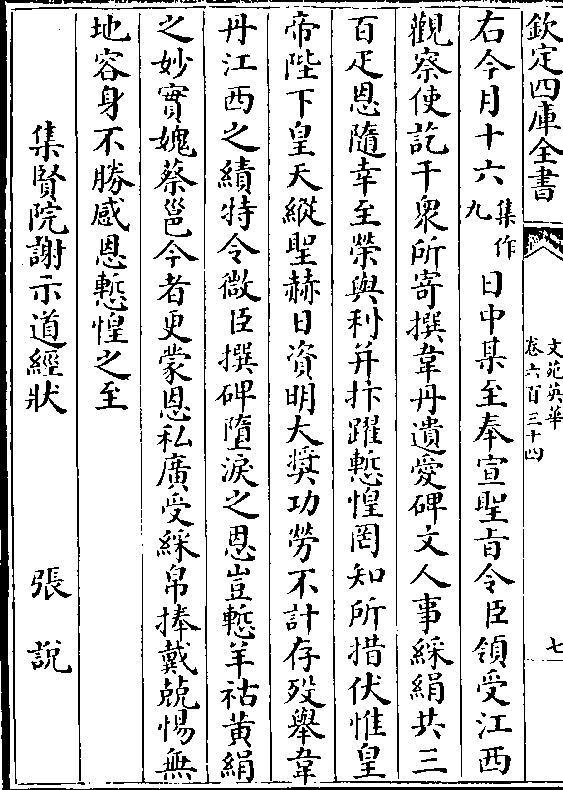 欽定四庫全書
文苑英華
卷六百三十四
七
右今月十六集作九日中某至奉宣聖旨令臣領受江西
觀察使訖干衆所寄撰韋丹遺愛碑文人事綵絹共三
百疋恩隨幸至榮與利并抃躍慙惶罔知所措伏惟皇
帝陛下皇天縱聖赫日資明大奬功勞不計存殁舉韋
丹江西之績特令微臣撰碑墮淚之恩豈慙羊祜黄絹
之妙實媿蔡邕今者更蒙恩私廣受綵帛捧戴兢惕無
地容身不勝感恩慙惶之至
集賢院謝示道經狀
張說